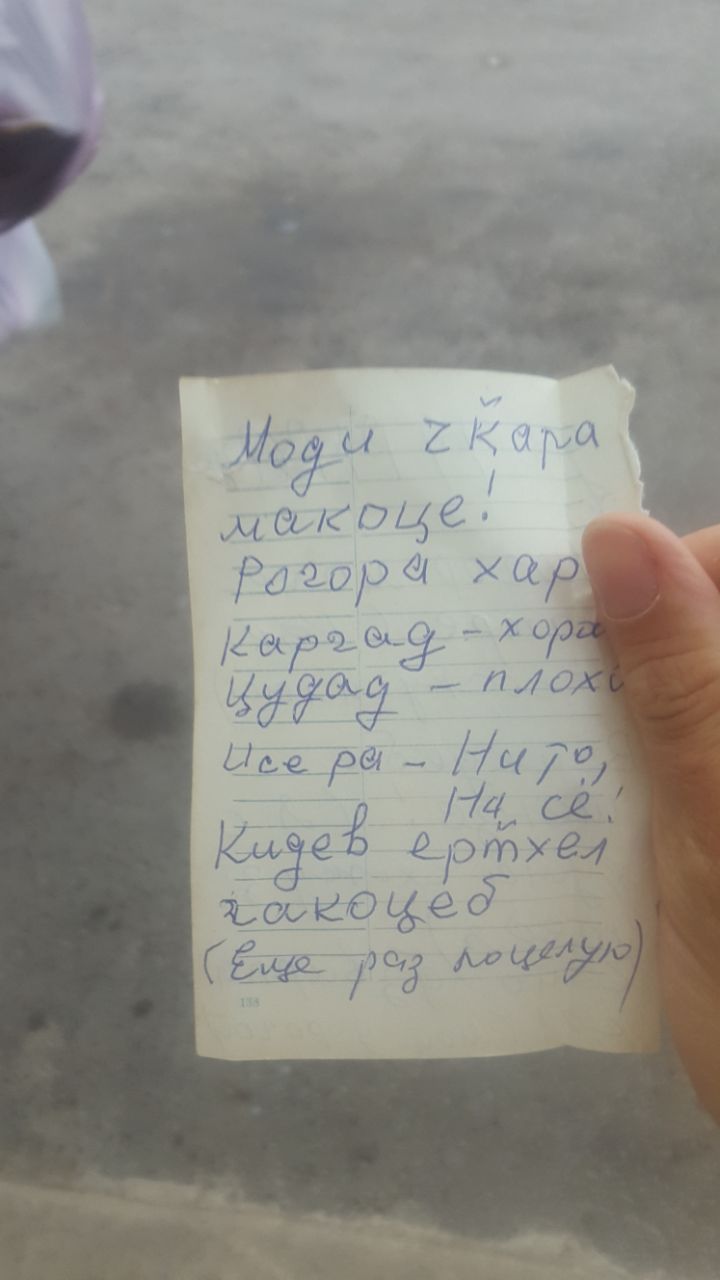 Моди чк̆ара
макоце!
Рогора хар
Каргад - хоро
Цудад - плохо
Исе ра - Ни то,
Ни сё!
Кидев ерт̆хел
гакоцеб
(Еще раз поцелую)
138